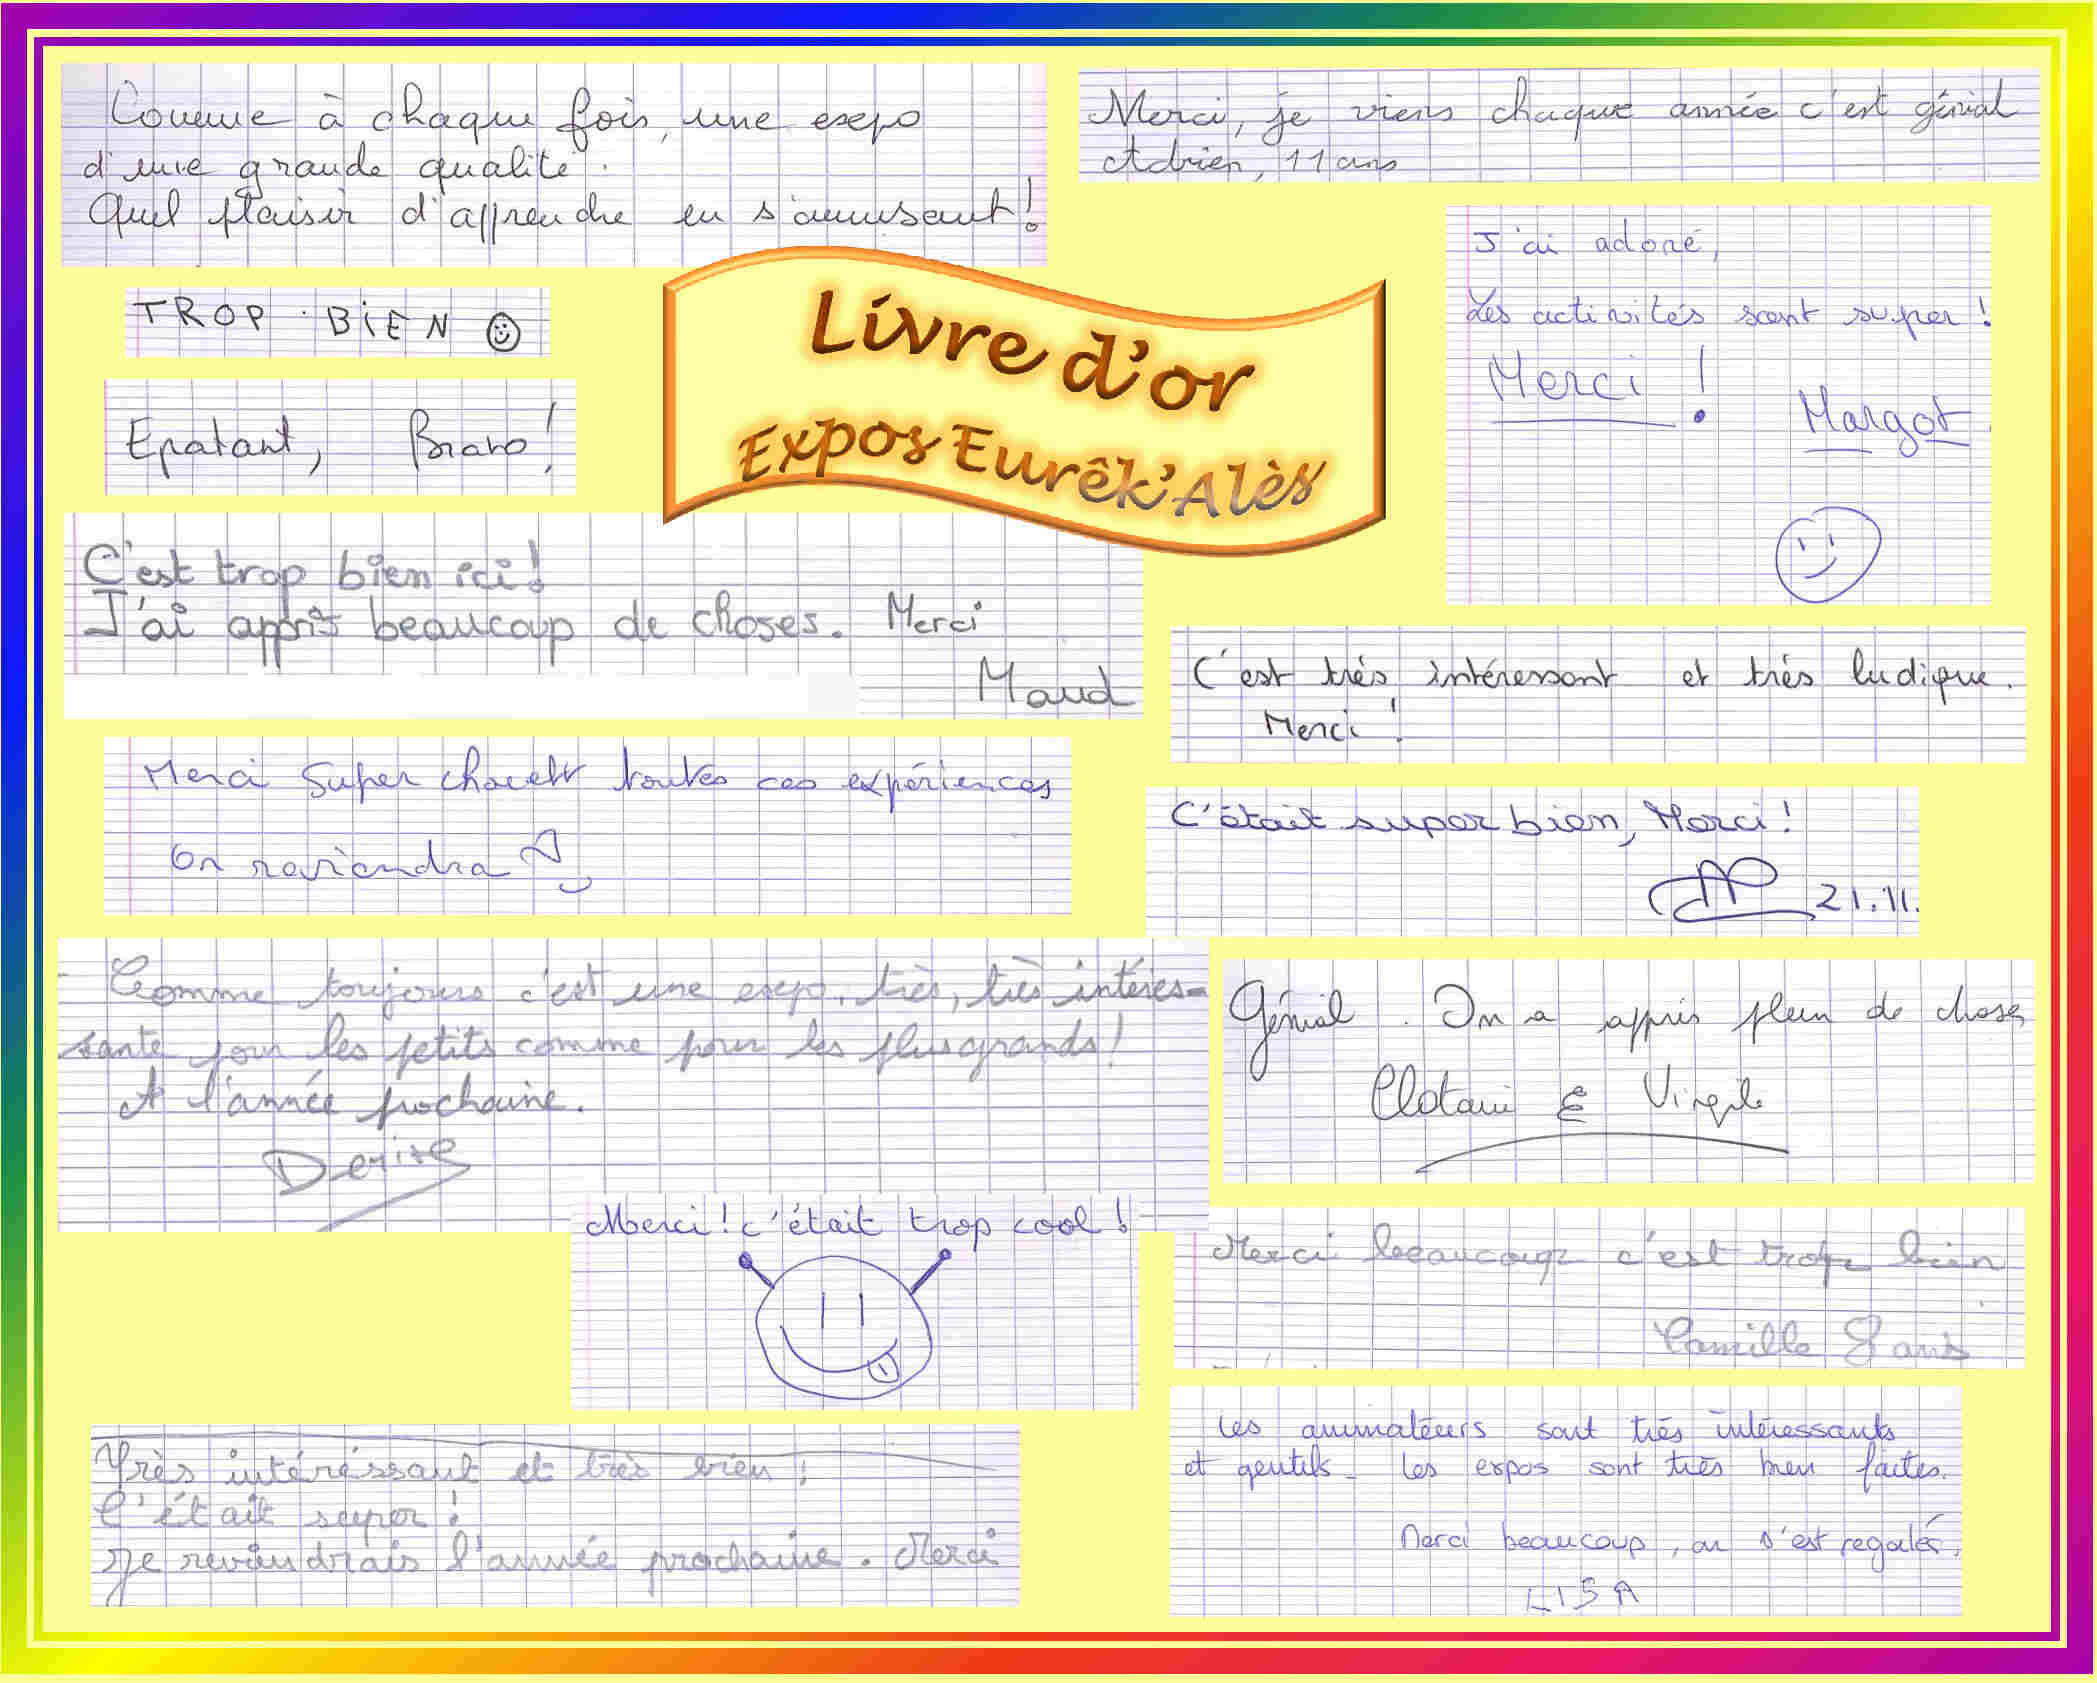 Comme à chaque fois, une expo
d'une grande qualité.
Quel plaisir d'apprendre en s'amusant !
Merci, je viens chaque année c'est génial
Adrien, 11 ans
J'ai adoré,
Les activités sont super !
Merci !
Margot
TROP BIEN
Livre d'or
Expos Eurêk'Alès
Epatant, Bravo !
C'est trop bien ici !
J'ai appris beaucoup de choses. Merci
Maud
C'est très intéressant et très ludique.
Merci !
Merci Super toutes ces expériences
On reviendra
C'était super bien, Merci !
21.11.
Comme toujours c'est une expo. très, très intéres-
sante pour les petits comme pour les plus grands !
A l'année prochaine.
Denise
Génial. On a appris plein de choses
Clotaire & Virgile
Merci ! c'était trop cool !
Merci beaucoup c'est trop bien
Camille 8 ans
Très intéréssant et très bien !
C'était super !
Je reviendrais l'année prochaine. Merci
Les animateurs sont très intéressants
et gentils - Les expos sont très bien faites.
Merci beaucoup, on s'est regalés.
LISA